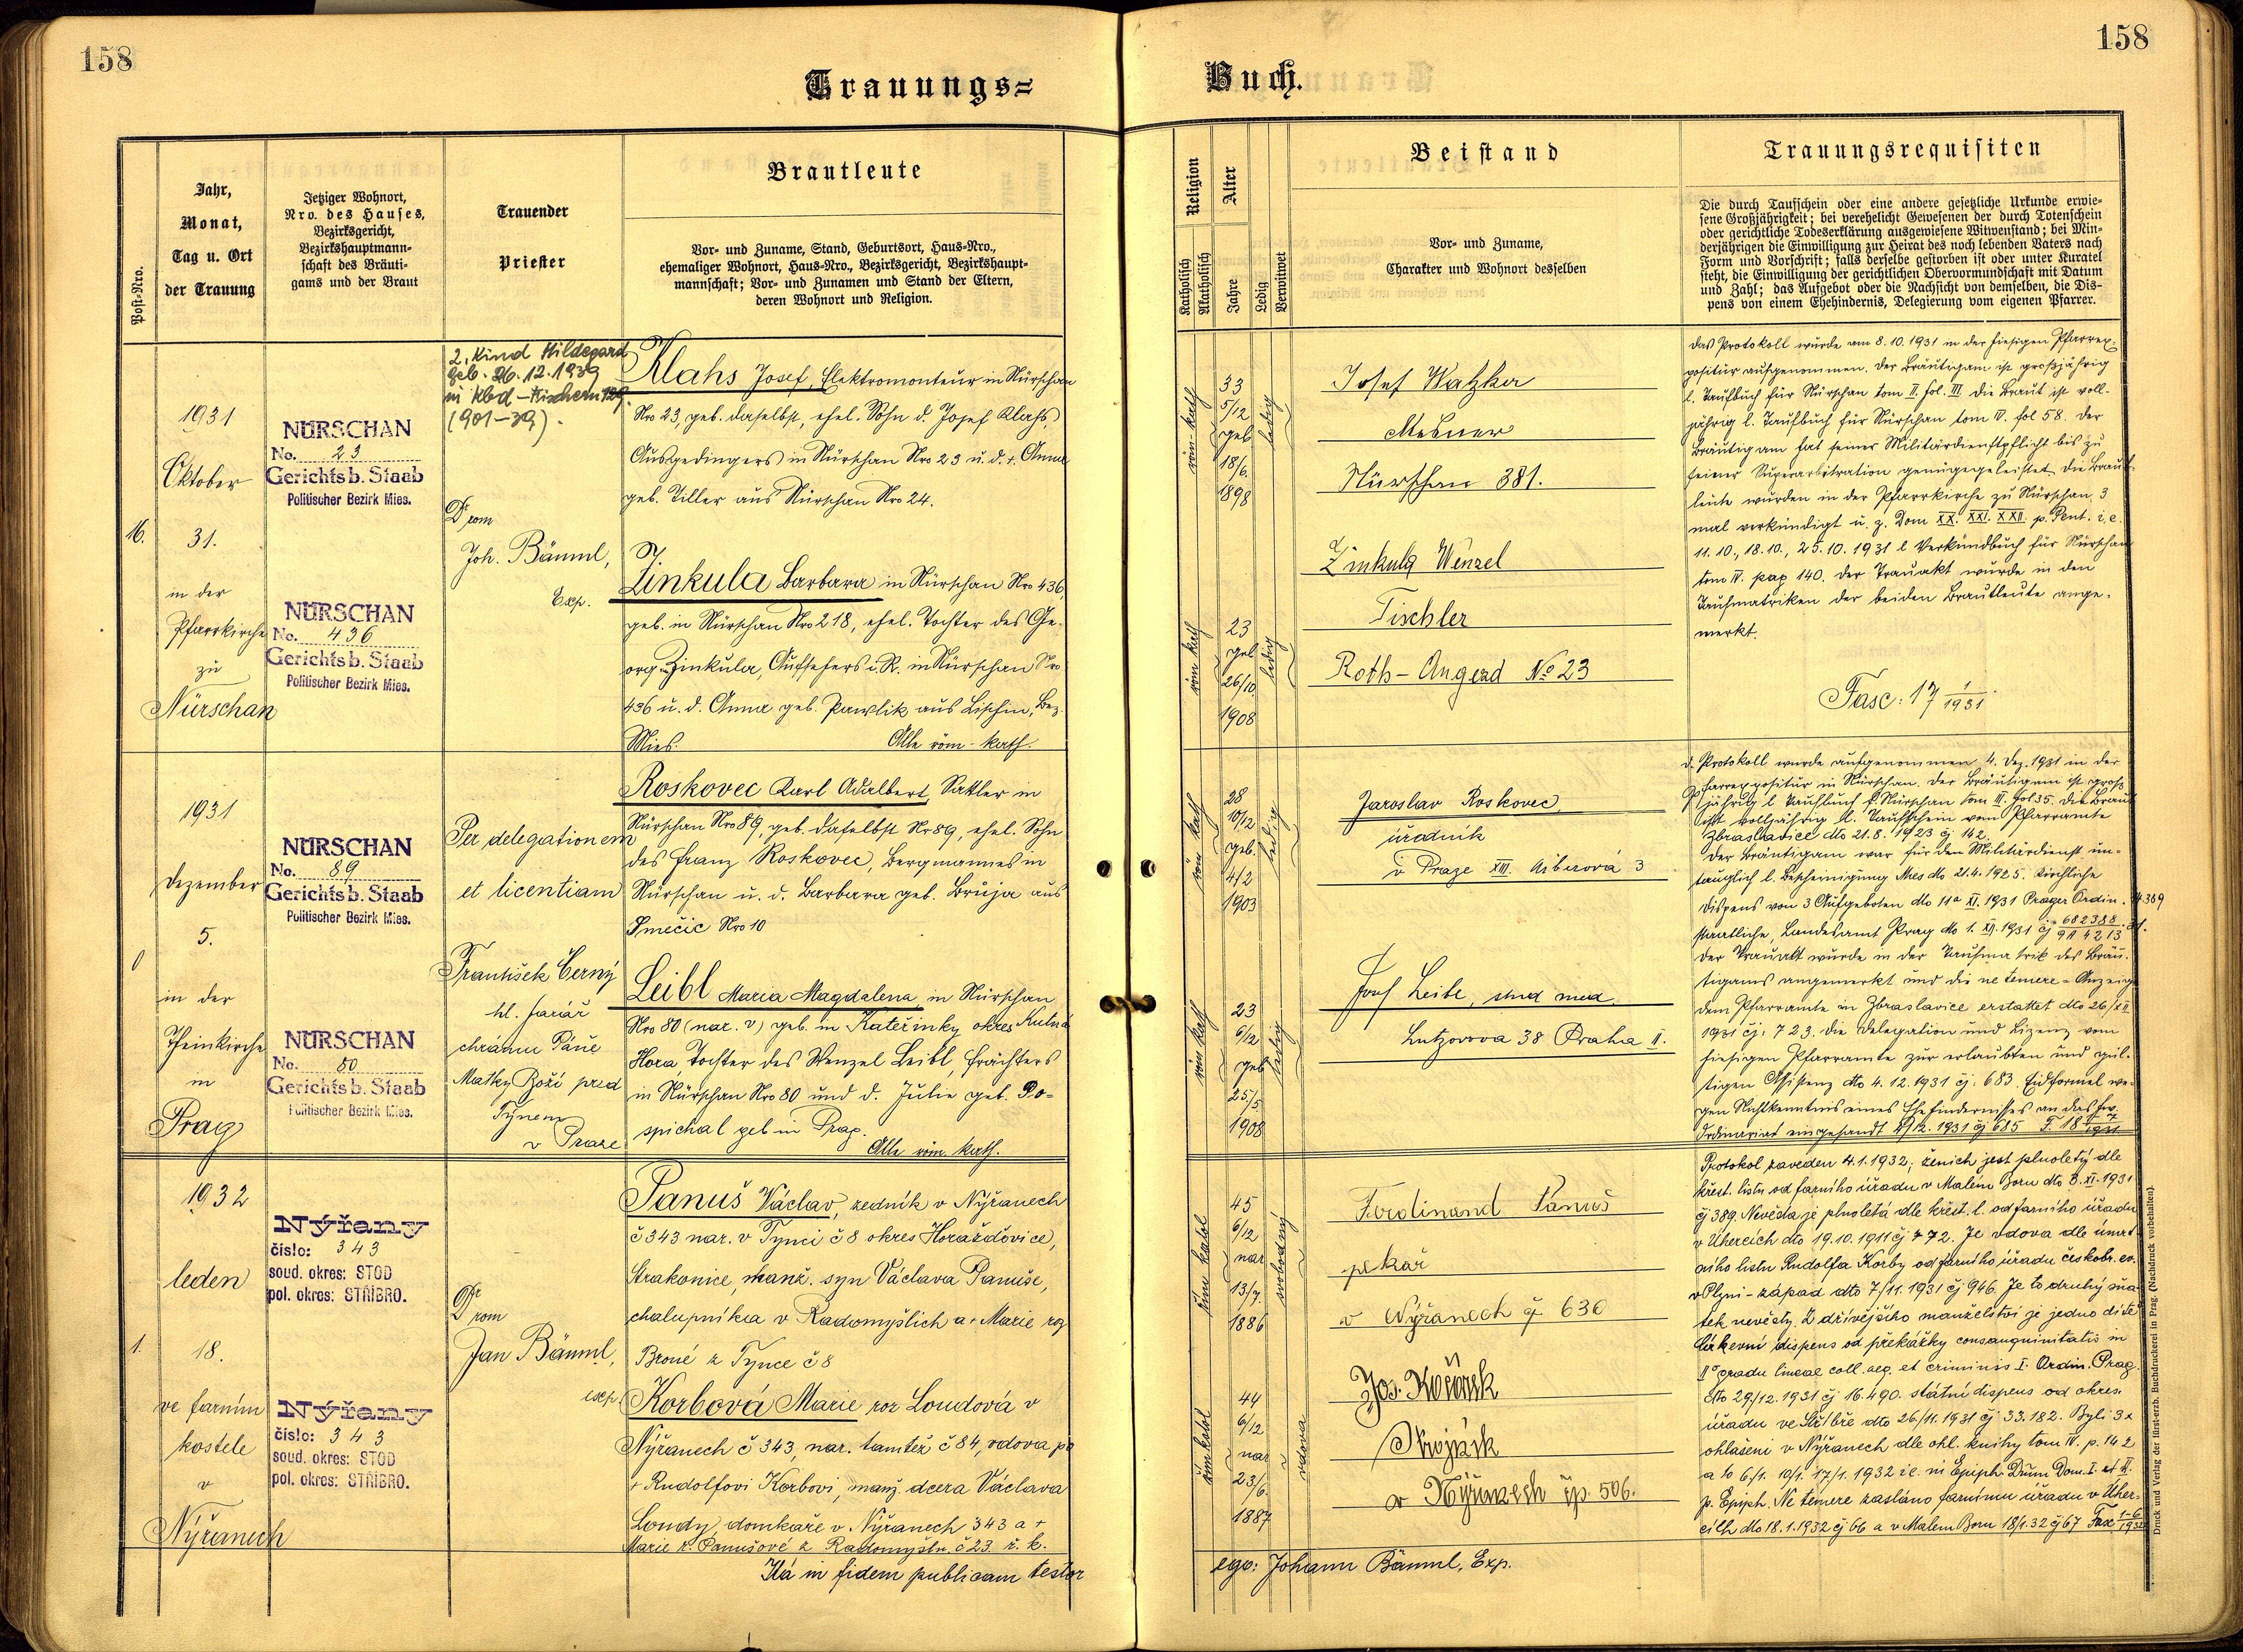 158
Trauungs=
Post-Nro.
Jahr,
Monat,
Tag u. Ort
der Trauung
Jetziger Wohnort,
Nro. des Hauses,
Bezirksgericht,
Bezirkshauptmann-
schaft des Bräuti-
gams und der Braut
Trauender
Priester
Brautleute
Vor- und Zuname, Stand, Geburtsort, Haus-Nro.,
ehemaliger Wohnort, Haus-Nro., Bezirksgericht, Bezirkshaupt-
mannschaft; Vor- und Zunamen und Stand der Eltern,
deren Wohnort und Religion.
16.
1931
Oktober
31.
in der
Pfarrkirche
zu
Nürschan
NÜRSCHAN
No. 23
Gerichtsb. Staab
Politischer Bezirk Mies.
NÜRSCHAN
No. 436
Gerichtsb. Staab
Politischer Bezirk Mies.
2. Kind Hildegard
geb. 26.12.1939
in Kbd - Fischern 129.
(901-39).
Dr rom
Joh. Bäuml,
Exp.
Klahs Josef, Elektromonteur in Nürschan
Nro 23, geb. daselbst, ehel. Sohn d. Josef Klahs,
Ausgedingers in Nürschan Nro 23 u. d. +. Anna
geb. Tiller aus Nürschan Nro 24.
Zinkula Barbara in Nürschan Nro 436,
geb. in Nürschan Nro 218, ehel. Tochter des Ge-
org Zinkula, Aufsehers i. R. in Nürschan Nro
436 u. d. Anna geb. Pawlik aus Lischin, Bez.
Mies. Alle röm-kath.
1931
Dezember
5.
in der
Theinkirche
in
Prag
NÜRSCHAN
No. 89
Gerichtsb. Staab
Politischer Bezirk Mies.
NÜRSCHAN
No. 80
Gerichtsb. Staab
Politischer Bezirk Mies.
Per delegationem
et licentiam
František Černý
hl. farář
chrámu Páně
Matky Boží pred
Týnem
v Praze
Roskovec Karl Adalbert, Sattler in
Nürschan Nro 89, geb. daselbst Nr 89, ehel. Sohn
des Franz Roskovec, Bergmannes in
Nürschan u. d. Barbara geb. Brůja aus
Smečic Nro 10
Leibl Maria Magdalena in Nürschan
Nro 80 (nar. v) geb. in Kateřinky okres Kutná
Hora, Tochter des Wenzel Leibl, Frächters
in Nürschan Nro 80 und d. Julie geb. Po-
spichal geb in Prag.
Alle röm. kath.
1.
1932
leden
18.
ve farním
kostele
v
Nýřanech
Nýřany
číslo: 343
soud. okres: STOD
pol. okres: STŘÍBRO.
Nýřany
číslo: 343
soud. okres: STOD
pol. okres: STŘÍBRO.
Dr rom
Jan Bäuml,
exp.
Panuš Václav, zedník v Nýřanech
č 343 nar. v Týnci č 8 okres Horažďovice,
Strakonice, manž. syn Václava Panuše,
chalupníka v Radomyšlich a + Marie roz
Broné z Týnce č 8
Korbová Marie roz Loudová v
Nýřanech č 343, nar. tamtéž č 84, vdova po
+ Rudolfovi Korbovi, manž. dcera Václava
Loudy, domkaře v Nýřanech 343 a +
Marie r. Panušové z Radomyšle č 23. ř. k.
Ita in fidem publicam testor
158
Buch.
Religion
Katholisch
Akatholisch
Alter
Jahre
Ledig
Verwitwet
Beistand
Vor- und Zuname,
Charakter und Wohnort desselben
Trauungsrequisiten
Die durch Taufschein oder eine andere gesetzliche Urkunde erwie-
sene Großjährigkeit; bei verehelicht Gewesenen der durch Totenschein
oder gerichtliche Todeserklärung ausgewiesene Witwenstand; bei Min-
derjährigen die Einwilligung zur Heirat des noch lebenden Vaters nach
Form und Vorschrift; falls derselbe gestorben ist oder unter Kuratel
steht, die Einwilligung der gerichtlichen Obervormundschaft mit Datum
und Zahl; das Aufgebot oder die Nachsicht von demselben, die Dis-
pens von einem Ehehindernis, Delegierung vom eigenen Pfarrer.
röm-kath
33
5/12
geb
18/6.
1898
ledig
röm kath
23
geb
26/10
1908
ledig
Josef Watzka
Mesner
Nürschan 381.
Zinkula Wenzel
Tischler
Roth-Augezd No 23
Das Protokoll wurde am 8.10.1931 in der hiesigen Pfarrex-
positur aufgenommen. Der Bräutigam ist großjährig
l. Taufbuch für Nürschan tom II. fol. III. Die Braut ist voll-
jährig l. Taufbuch für Nürschan tom IV. fol 58. Der
Bräutigam hat seiner Militärdienstpflicht bis zu
seiner Superarbitration genüge geleistet. Die Braut-
leute wurden in der Pfarrkirche zu Nürschan 3
mal verkündigt u. z. Dom XX. XXI. XXII. p. Pent. i. e.
11.10., 18.10., 25.10.1931 l Verkündbuch für Nürschan
tom IV. pag 140. Der Trauakt wurde in den
Taufmatriken der beiden Brautleute ange-
merkt.
Fasc: 17 1/1931.
röm kath
28
10/12
geb.
4/2
1903
ledig
röm kath
23
6/12
geb
25/5
1908
ledig
Jaroslav Roskovec,
úředník
v Praze XIII. 3
Josef Leibl, stud med.
Lutzovova 38 Praha II.
d. Protokoll wurde aufgenommen 4. Dez. 1931 in der
Pfarrexpositur in Nürschan. Der Bräutigam ist groß-
jährig l Taufbuch f. Nürschan tom III. fol 35. die Braut
ist volljährig l. Taufschein vom Pfarramte
Zbraslavice dto 21.8.1923 čj 162.
Der Bräutigam war für den Militärdienst un-
tauglich l. Bescheinigung Mies dto 21.4.1925. Kirchliche
Dispens von 3 Aufgeboten dto XI. 1931 Prager Ordin.
staatliche, Landesamt Prag dto 1. 1931 čj
Der Trauakt wurde in der Taufmatrik des Bräu-
tigams angemerkt und die ne temere-Anzeige
dem Pfarramte in Zbraslavice erstattet dto 26/XII
1931 čj: 723. Die Delegation und Lizenz vom
hiesigen Pfarramte zur erlaubten und gül-
tigen Assistenz dto 4.12.1931 čj: 683. Eidformel we-
gen Nichtkenntnis eines Ehehindernisses an das
Ordinariat eingesandt 4/12.1931 čj 685 F. 18
řím katol
45
6/12
nar
13/7.
1886
svobodný
řím katol
44
6/12
nar
23/6.
1887
vdova
Ferdinand Panuš
pekař
v Nýřanech čp 630
Jos. Kořínek
Strojník
v Nýřanech čp. 506.
Protokol zaveden 4.1.1932; ženich jest plnoletý dle
křest. listu od farního úřadu v Malém Boru dto 8. XI. 1931
čj 389. Nevěsta je plnoletá dle křest. l. od farního úřadu
v Úhercích dto 19.10.1911 čj 772. Je vdova dle úmrt-
ního listu Rudolfa Korby od farního úřadu českobr. ev.
v Plzni-západ dto 7/11.1931 čj 946. Je to druhý sňa-
tek nevěsty. Z dřívějšího manželství je jedno dítě
Církevní dispens od překážky consanguinitatis in
II° gradu lineae coll. aeq. et criminis I. Ordin. Prag
dto 29/12.1931 čj 16.490. státní dispens od okres.
úřadu ve Stříbře dto 26/11.1931 čj 33.182. Byli 3x
ohlášeni v Nýřanech dle ohl. knihy tom IV. p. 142
a to 6/1. 10/1. 17/1. 1932 i.e. in Epiph. Dñum Dom. I. et II.
p. Epiph. Ne temere zasláno farnímu úřadu v Úher-
cích dto 18.1.1932 čj 66 a v Malém Boru 18/1.32 čj 67 Fasc 1-6/1932
ego: Johann Bäuml, Exp.
Druck und Verlag der fürst-erzb. Buchdruckerei in Prag. (Nachdruck vorbehalten).